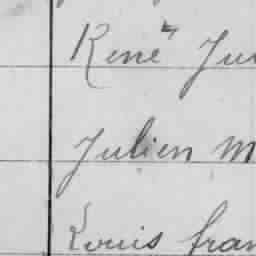 René Ju
Julien M
Louis fran